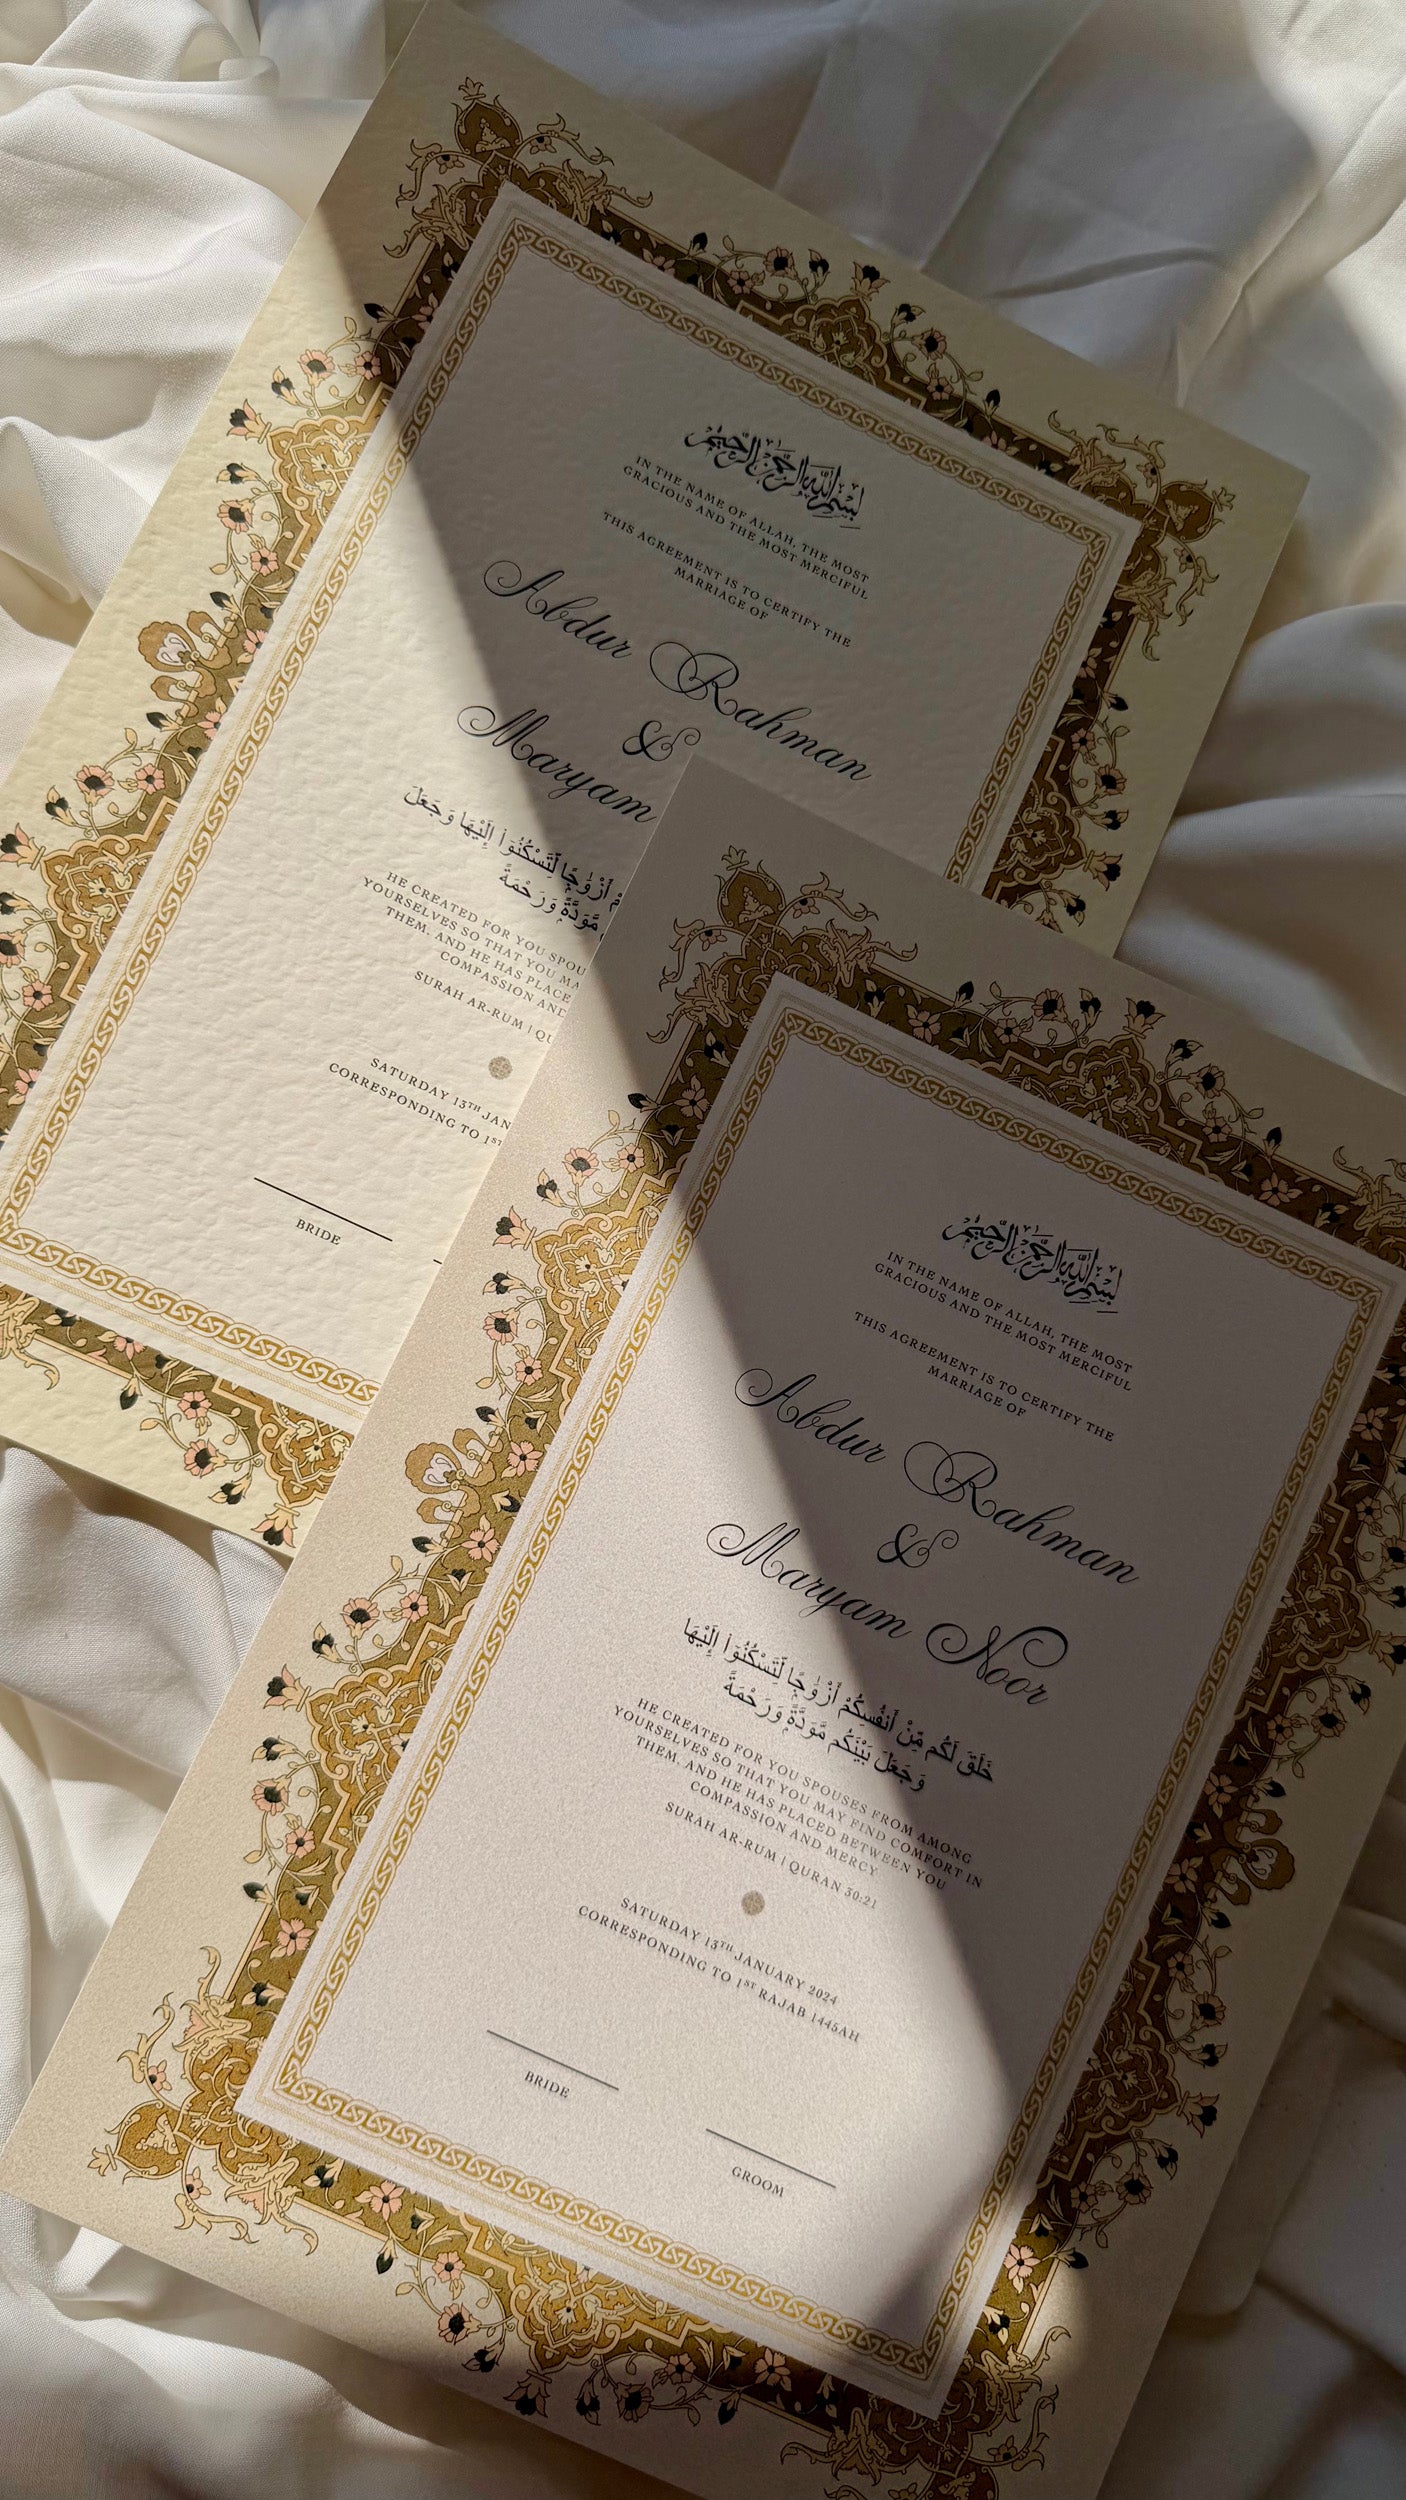 بِسْمِ اللَّهِ الرَّحْمَٰنِ الرَّحِيمِ
IN THE NAME OF ALLAH, THE MOST
GRACIOUS AND THE MOST MERCIFUL
THIS AGREEMENT IS TO CERTIFY THE
MARRIAGE OF
Abdur Rahman
&
Maryam
أَزْوَٰجًا لِّتَسْكُنُوٓا۟ إِلَيْهَا وَجَعَلَ
مَّوَدَّةً وَرَحْمَةً
HE CREATED FOR YOU SPOU
YOURSELVES SO THAT YOU MA
THEM. AND HE HAS PLACE
COMPASSION AND
SURAH AR-RUM | QU
SATURDAY 13TH JAN
CORRESPONDING TO 1ST
BRIDE
بِسْمِ اللَّهِ الرَّحْمَٰنِ الرَّحِيمِ
IN THE NAME OF ALLAH, THE MOST
GRACIOUS AND THE MOST MERCIFUL
THIS AGREEMENT IS TO CERTIFY THE
MARRIAGE OF
Abdur Rahman
&
Maryam Noor
خَلَقَ لَكُم مِّنْ أَنفُسِكُمْ أَزْوَٰجًا لِّتَسْكُنُوٓا۟ إِلَيْهَا
وَجَعَلَ بَيْنَكُم مَّوَدَّةً وَرَحْمَةً
HE CREATED FOR YOU SPOUSES FROM AMONG
YOURSELVES SO THAT YOU MAY FIND COMFORT IN
THEM. AND HE HAS PLACED BETWEEN YOU
COMPASSION AND MERCY
SURAH AR-RUM | QURAN 30:21
SATURDAY 13TH JANUARY 2024
CORRESPONDING TO 1ST RAJAB 1445AH
BRIDE
GROOM